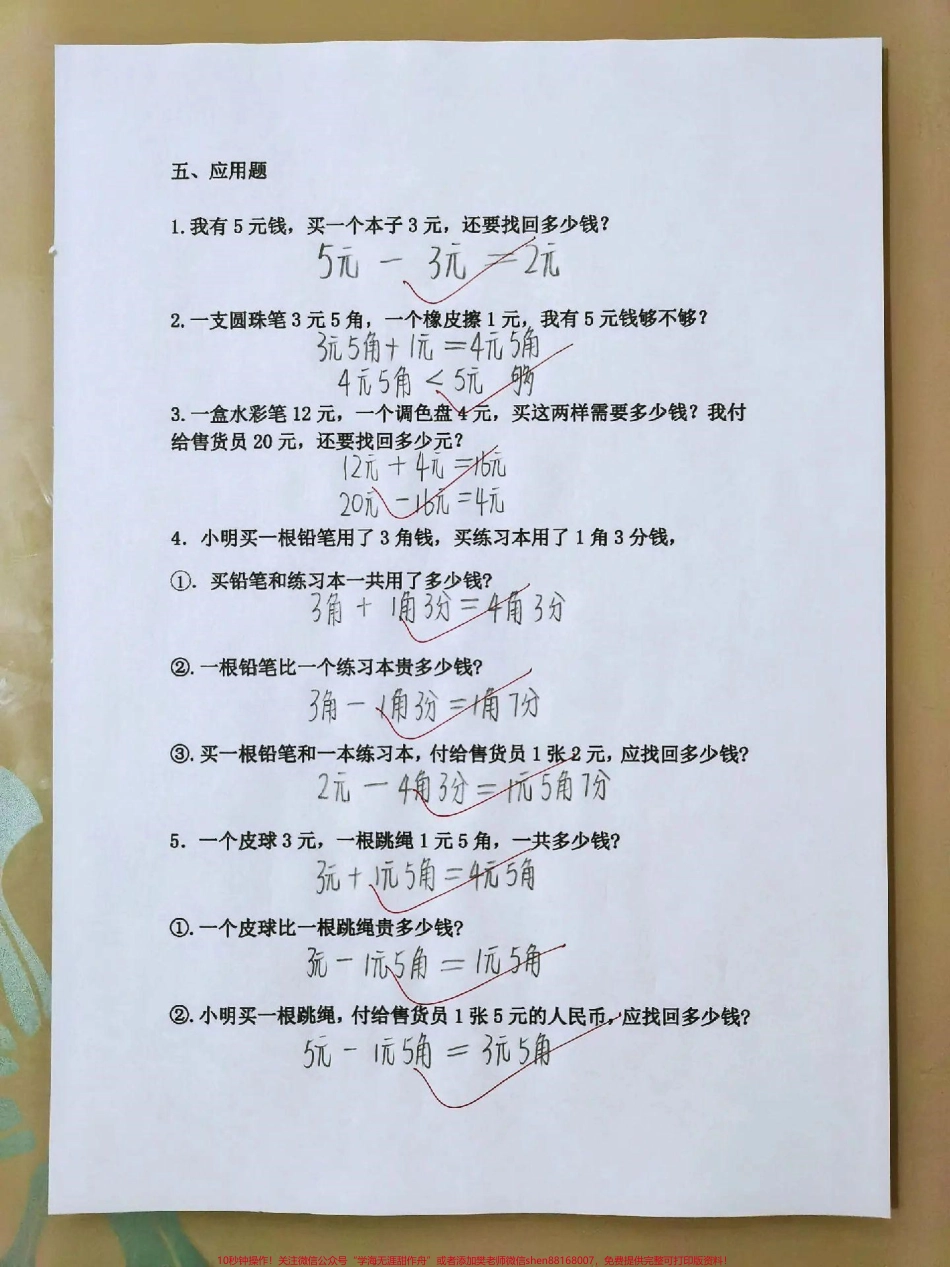 五、应用题
1.我有5元钱，买一个本子3元，还要找回多少钱？
5元 － 3元 ＝2元
2.一支圆珠笔3元5角，一个橡皮擦1元，我有5元钱够不够？
3元5角＋1元＝4元5角
4元5角＜5元 够
3.一盒水彩笔12元，一个调色盘4元，买这两样需要多少钱？我付
给售货员20元，还要找回多少元？
12元＋4元＝16元
20元－16元＝4元
4．小明买一根铅笔用了3角钱，买练习本用了1角3分钱，
①．买铅笔和练习本一共用了多少钱?
3角＋1角3分＝4角3分
②.一根铅笔比一个练习本贵多少钱?
3角－1角3分＝1角7分
③.买一根铅笔和一本练习本，付给售货员1张2元，应找回多少钱?
2元－4角3分＝1元5角7分
5．一个皮球3元，一根跳绳1元5角，一共多少钱?
3元＋1元5角＝4元5角
①.一个皮球比一根跳绳贵多少钱?
3元－1元5角＝1元5角
②.小明买一根跳绳，付给售货员1张5元的人民币，应找回多少钱?
5元－1元5角＝3元5角
10秒钟操作！关注微信公众号“学海无涯甜作舟”或者添加樊老师微信shen88168007，免费提供完整可打印版资料！